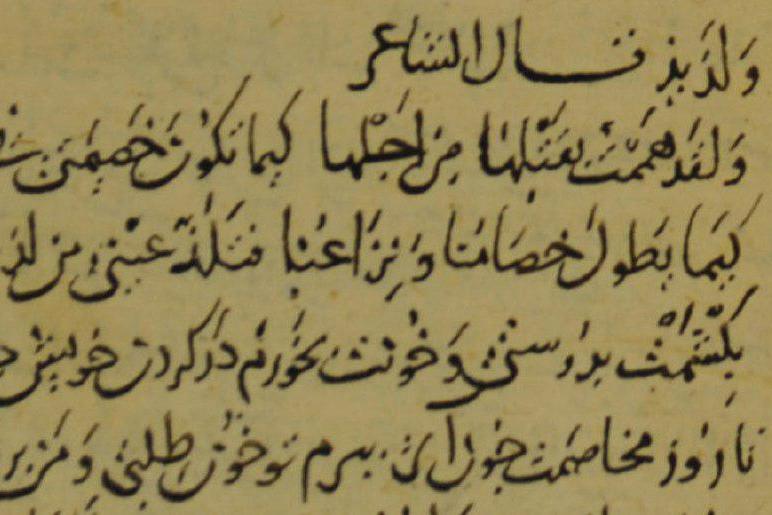 وَلَذَیذ قال الشاعر
وَلَقَد هَمَمْتُ بِقَتْلِهَا مِن اَجْلِهَا كَیما تَكوُنَ خَصِیمَتِی
كَیَما یَطوُلَ خِصَامُنا وَنِزَاعُنا فَتَلَذّ عَیْنِی مِن
بِكُشَمْتْ بدوستی وَ خُونت بخوَرم دَر كردن خویش
تا روز مخاصمت چون آیی ببرم تو خون طلبی وَمَن